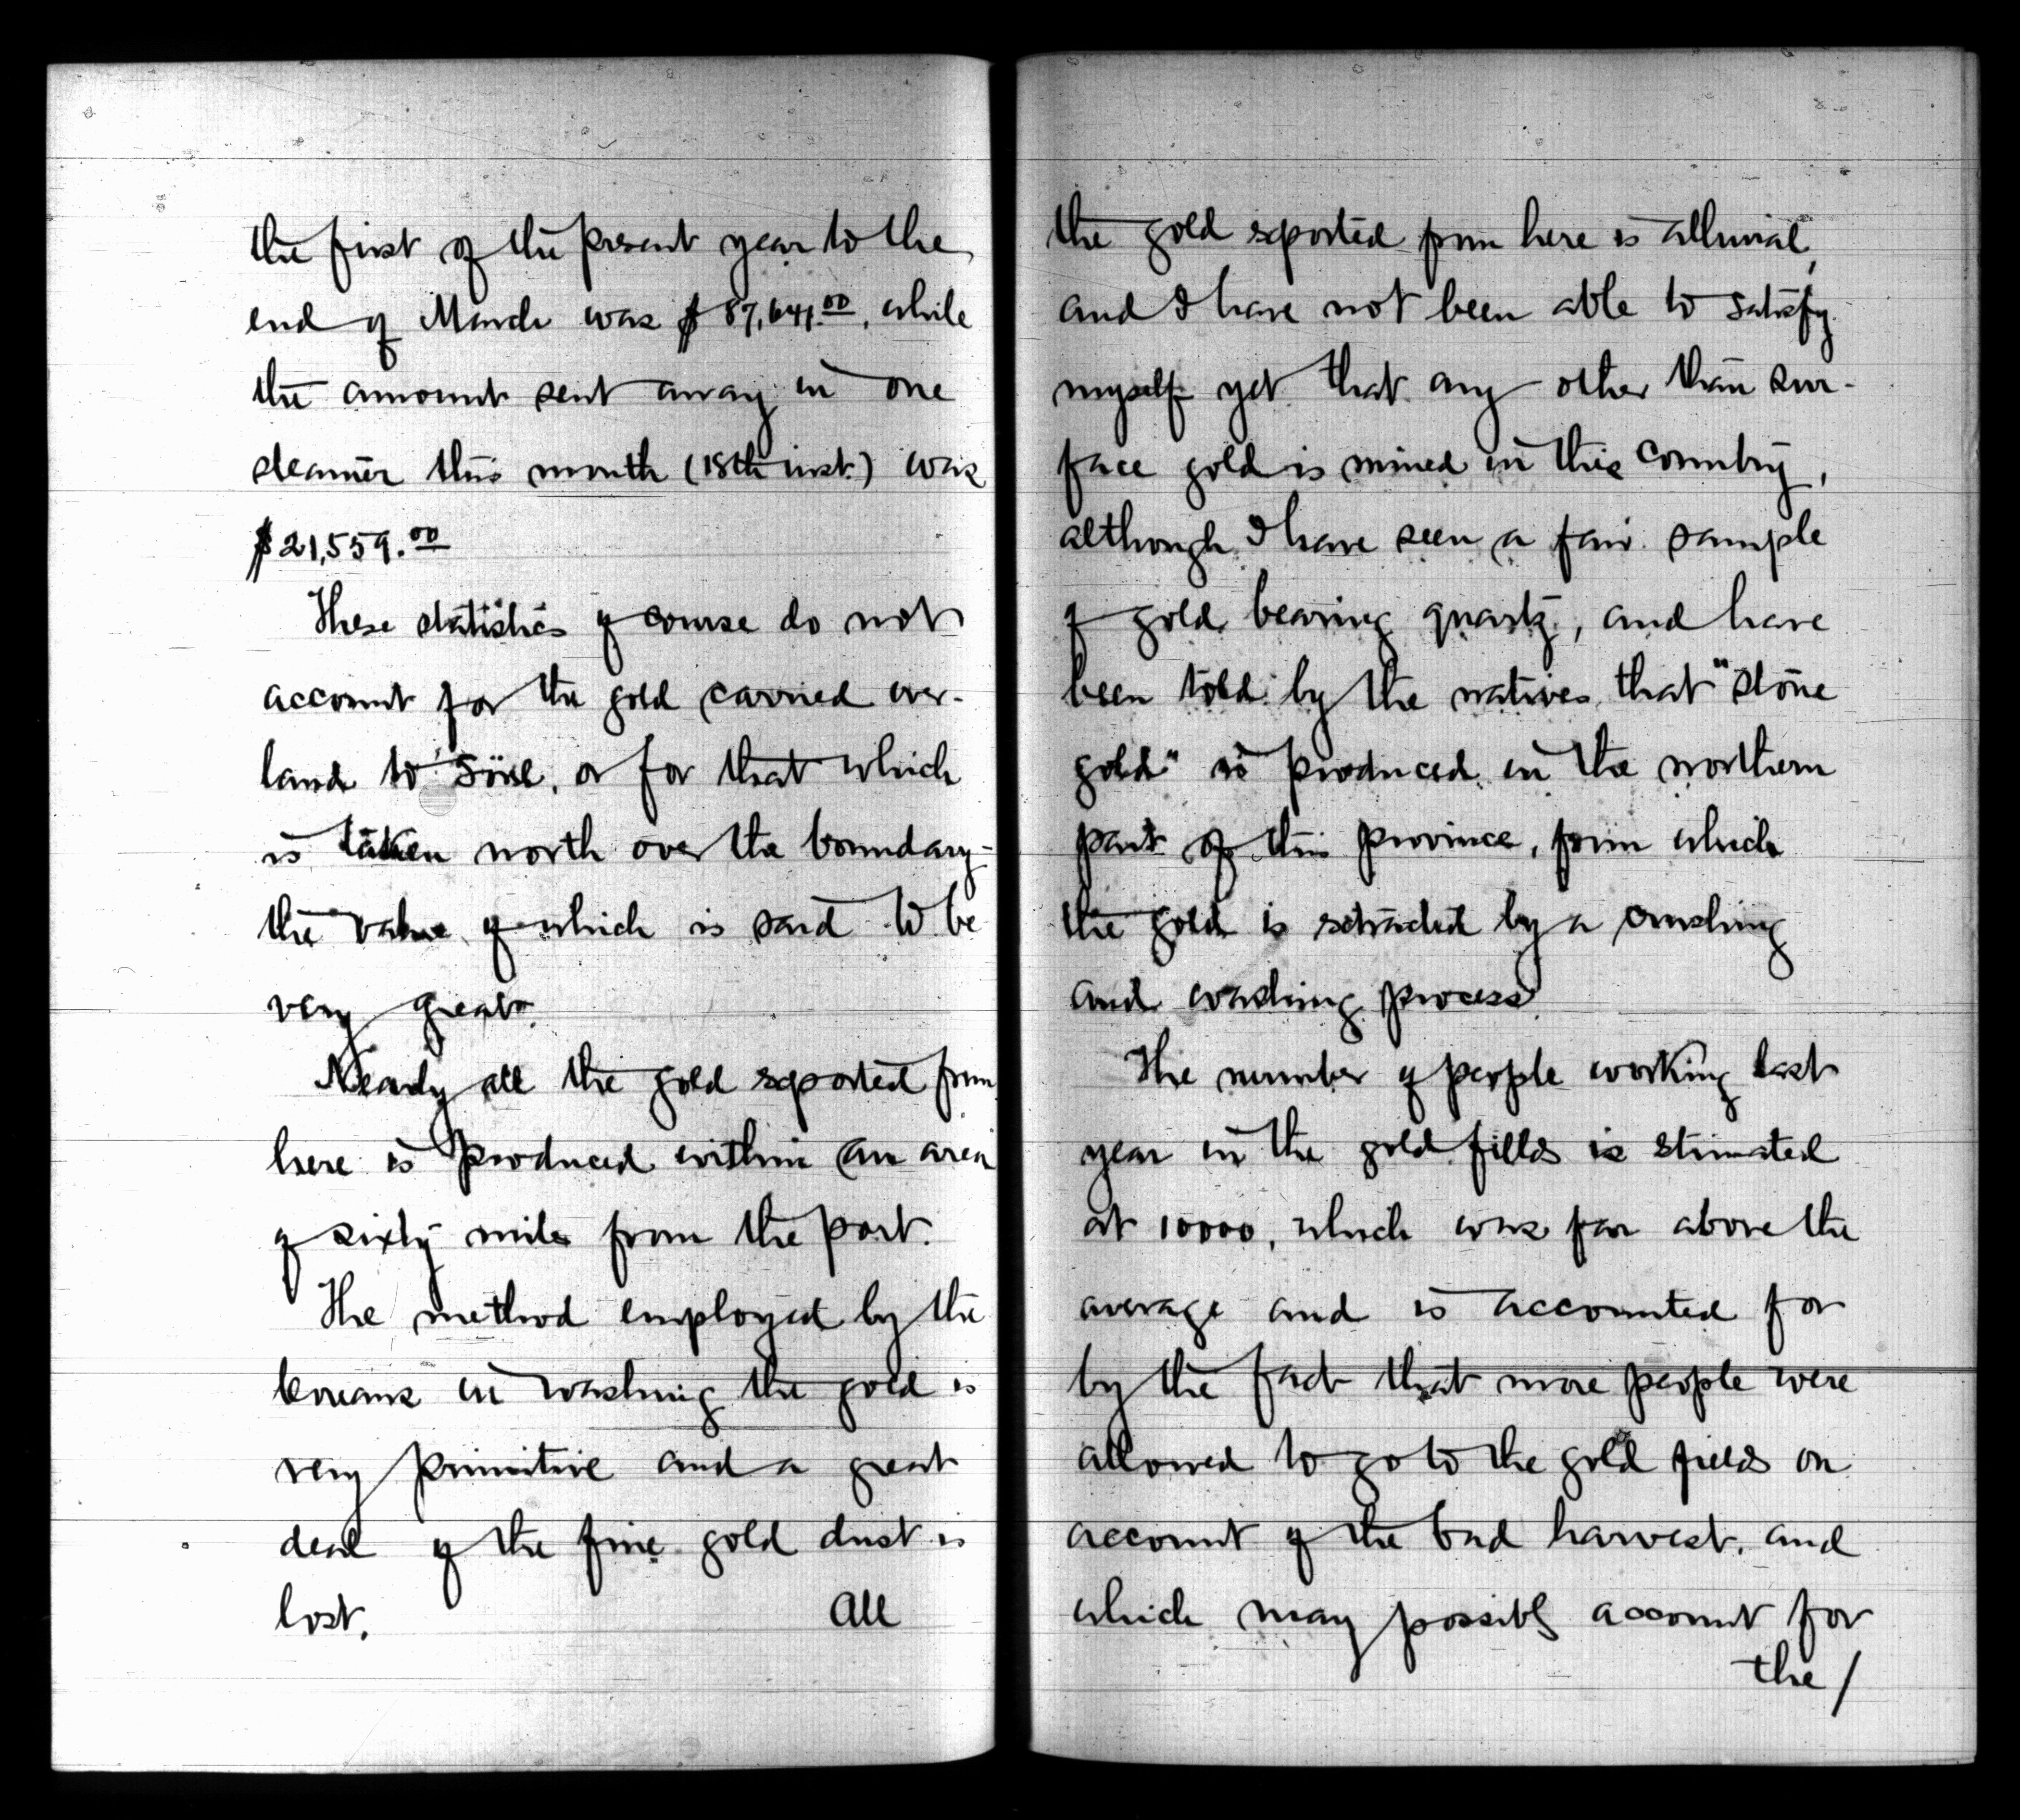 the first of the present year to the
end of March was $87,641.00, while
the amount sent away in one
steamer this month (18th inst.) was
$21,559.00
These statistics of course do not
account for the gold carried over-
land to Söul, or for that which
is taken north over the boundary-
the value of which is said to be
very great.
Nearly all the gold exported from
here is produced within an area
of sixty miles from the port.
The method employed by the
Coreans in washing the gold is
very primitive and a great
deal of the fine gold dust is
lost. All
the gold exported from here is alluvial,
and I have not been able to satisfy
myself yet that any other than sur-
face gold is mined in this country,
although I have seen a fair sample
of gold bearing quartz, and have
been told by the natives that "stone
gold" is produced in the northern
part of this province, from which
the gold is extracted by a crushing
and washing process.
The number of people working last
year in the gold fields is estimated
at 10000, which was far above the
average and is accounted for
by the fact that more people were
allowed to go to the gold fields on
account of the bad harvest, and
which may possibly account for
the/